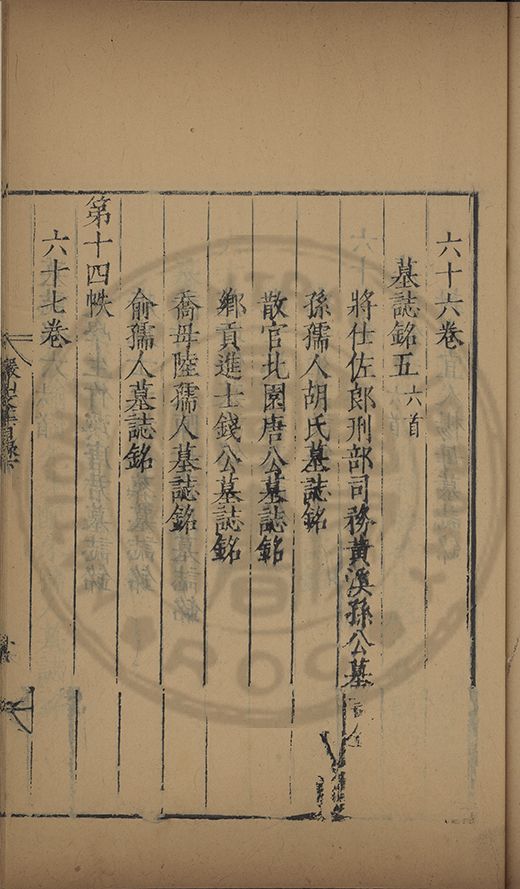 六十六卷
墓誌銘五 六首
將仕佐郎刑部司務黃溪孫公墓
孫孺人胡氏墓誌銘
散官北園唐公墓誌銘
鄉貢進士錢公墓誌銘
喬母陸孺人墓誌銘
俞孺人墓誌銘
第十四帙
六十七卷